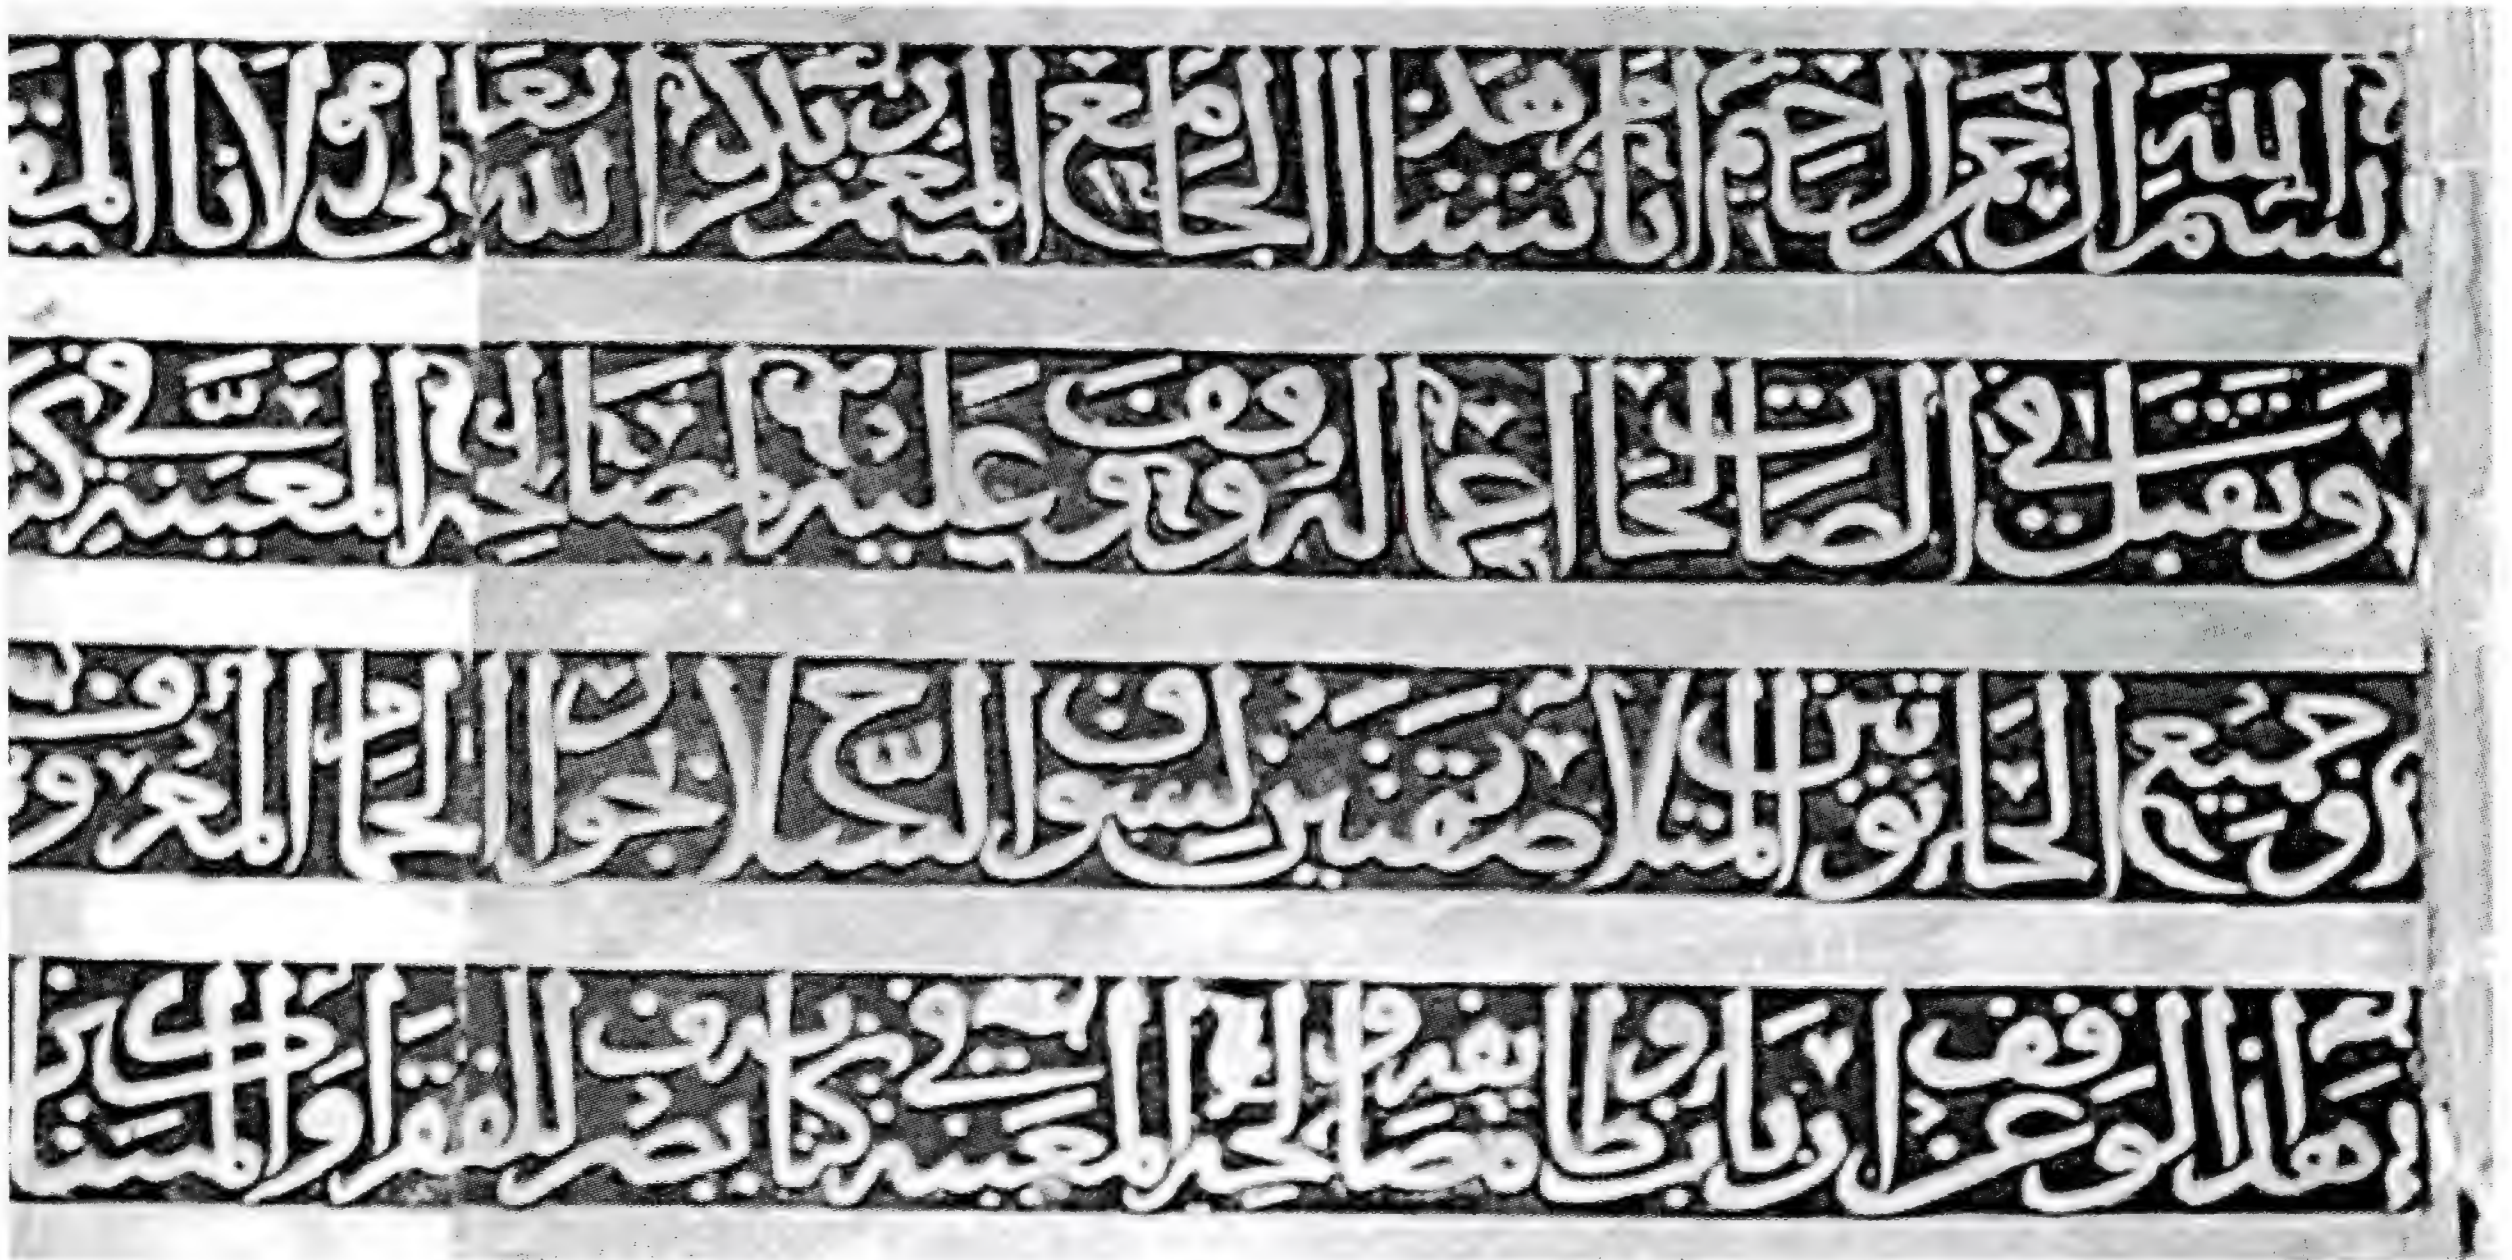 بسم الله الرحمن الرحيم أمر بانشا هذا الجامع المعمور بذكر الله تعالى مولانا المقر
وتقبل في الصالحات اعماله ووقف عليه وعلى مصالحه المعينة في
وجميع الحانوتين المتلاصقتين بسوق السلاح جوار الحمام المعروف
هذا الوقف عن أرباب وظايفه ومصالحه المعينة فيه في كتاب يصرف للفقراء والمساكين